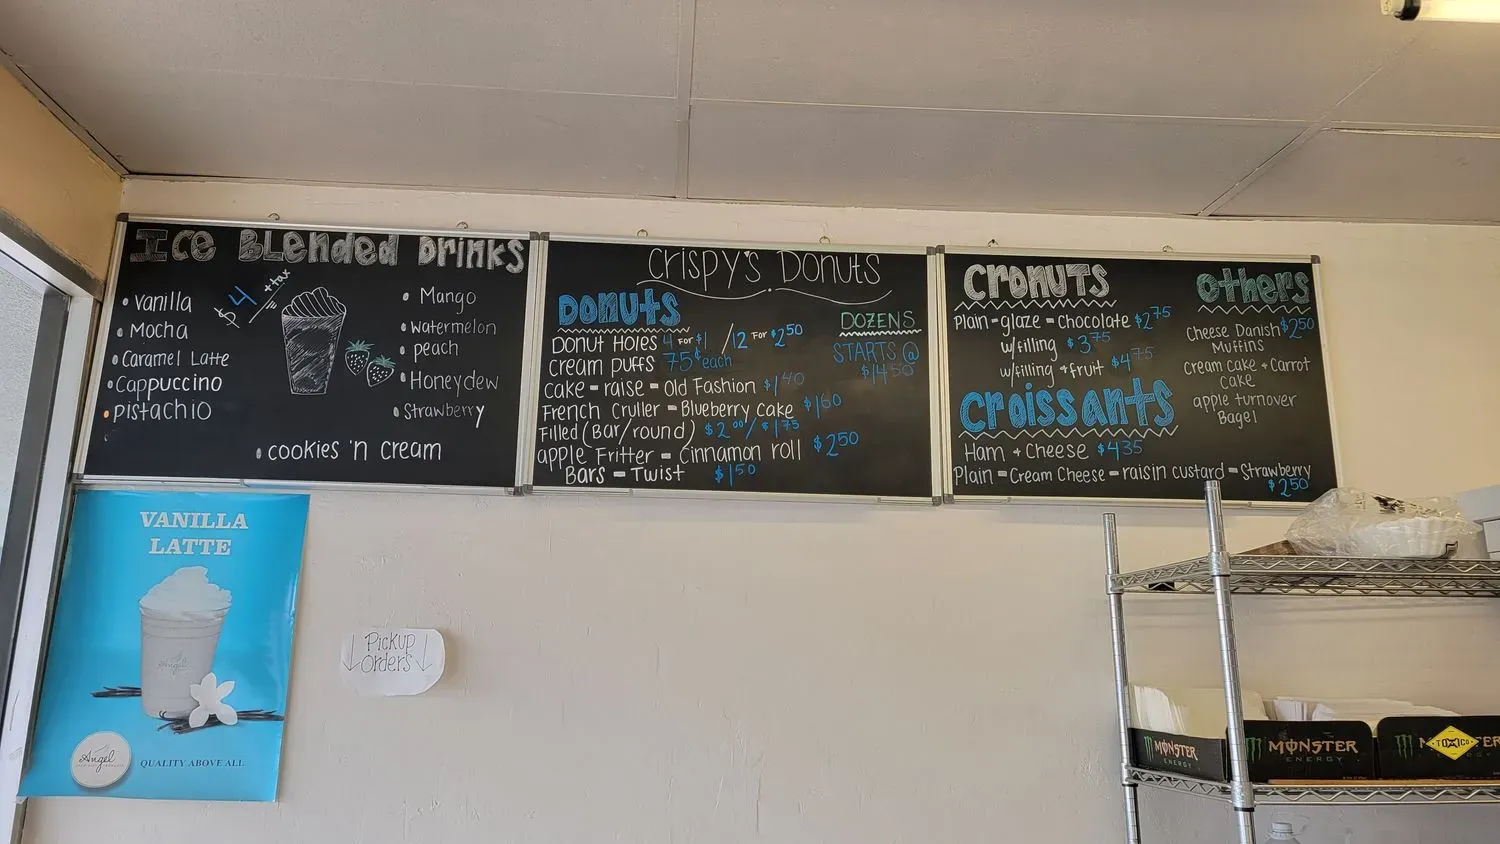 ICE BLENDED DRINKS
$4 + tax
• Vanilla
• Mocha
• Caramel Latte
• Cappuccino
• Pistachio
• Mango
• Watermelon
• peach
• Honeydew
• Strawberry
• cookies 'n cream
Crispy's Donuts
Donuts
Donut Holes 4 for $1 / 12 for $2.50
cream puffs 75¢ each
cake - raise - Old Fashion $1.40
French Cruller - Blueberry Cake $1.60
Filled (Bar/round) $2.00/$1.75
apple Fritter - Cinnamon roll $2.50
Bars - Twist $1.50
DOZENS
STARTS @
$14.50
CRONUTS
Plain - glaze - Chocolate $2.75
w/filling $3.75
w/filling + fruit $4.75
Croissants
Ham + Cheese $4.35
Plain - Cream Cheese - raisin custard - Strawberry
$2.50
Others
Cheese Danish $2.50
Muffins
cream cake + Carrot
Cake
apple turnover
Bagel
VANILLA
LATTE
Angel
Angel
QUALITY ABOVE ALL
Pickup
Orders
MONSTER
ENERGY
MONSTER
ENERGY
TOXICO